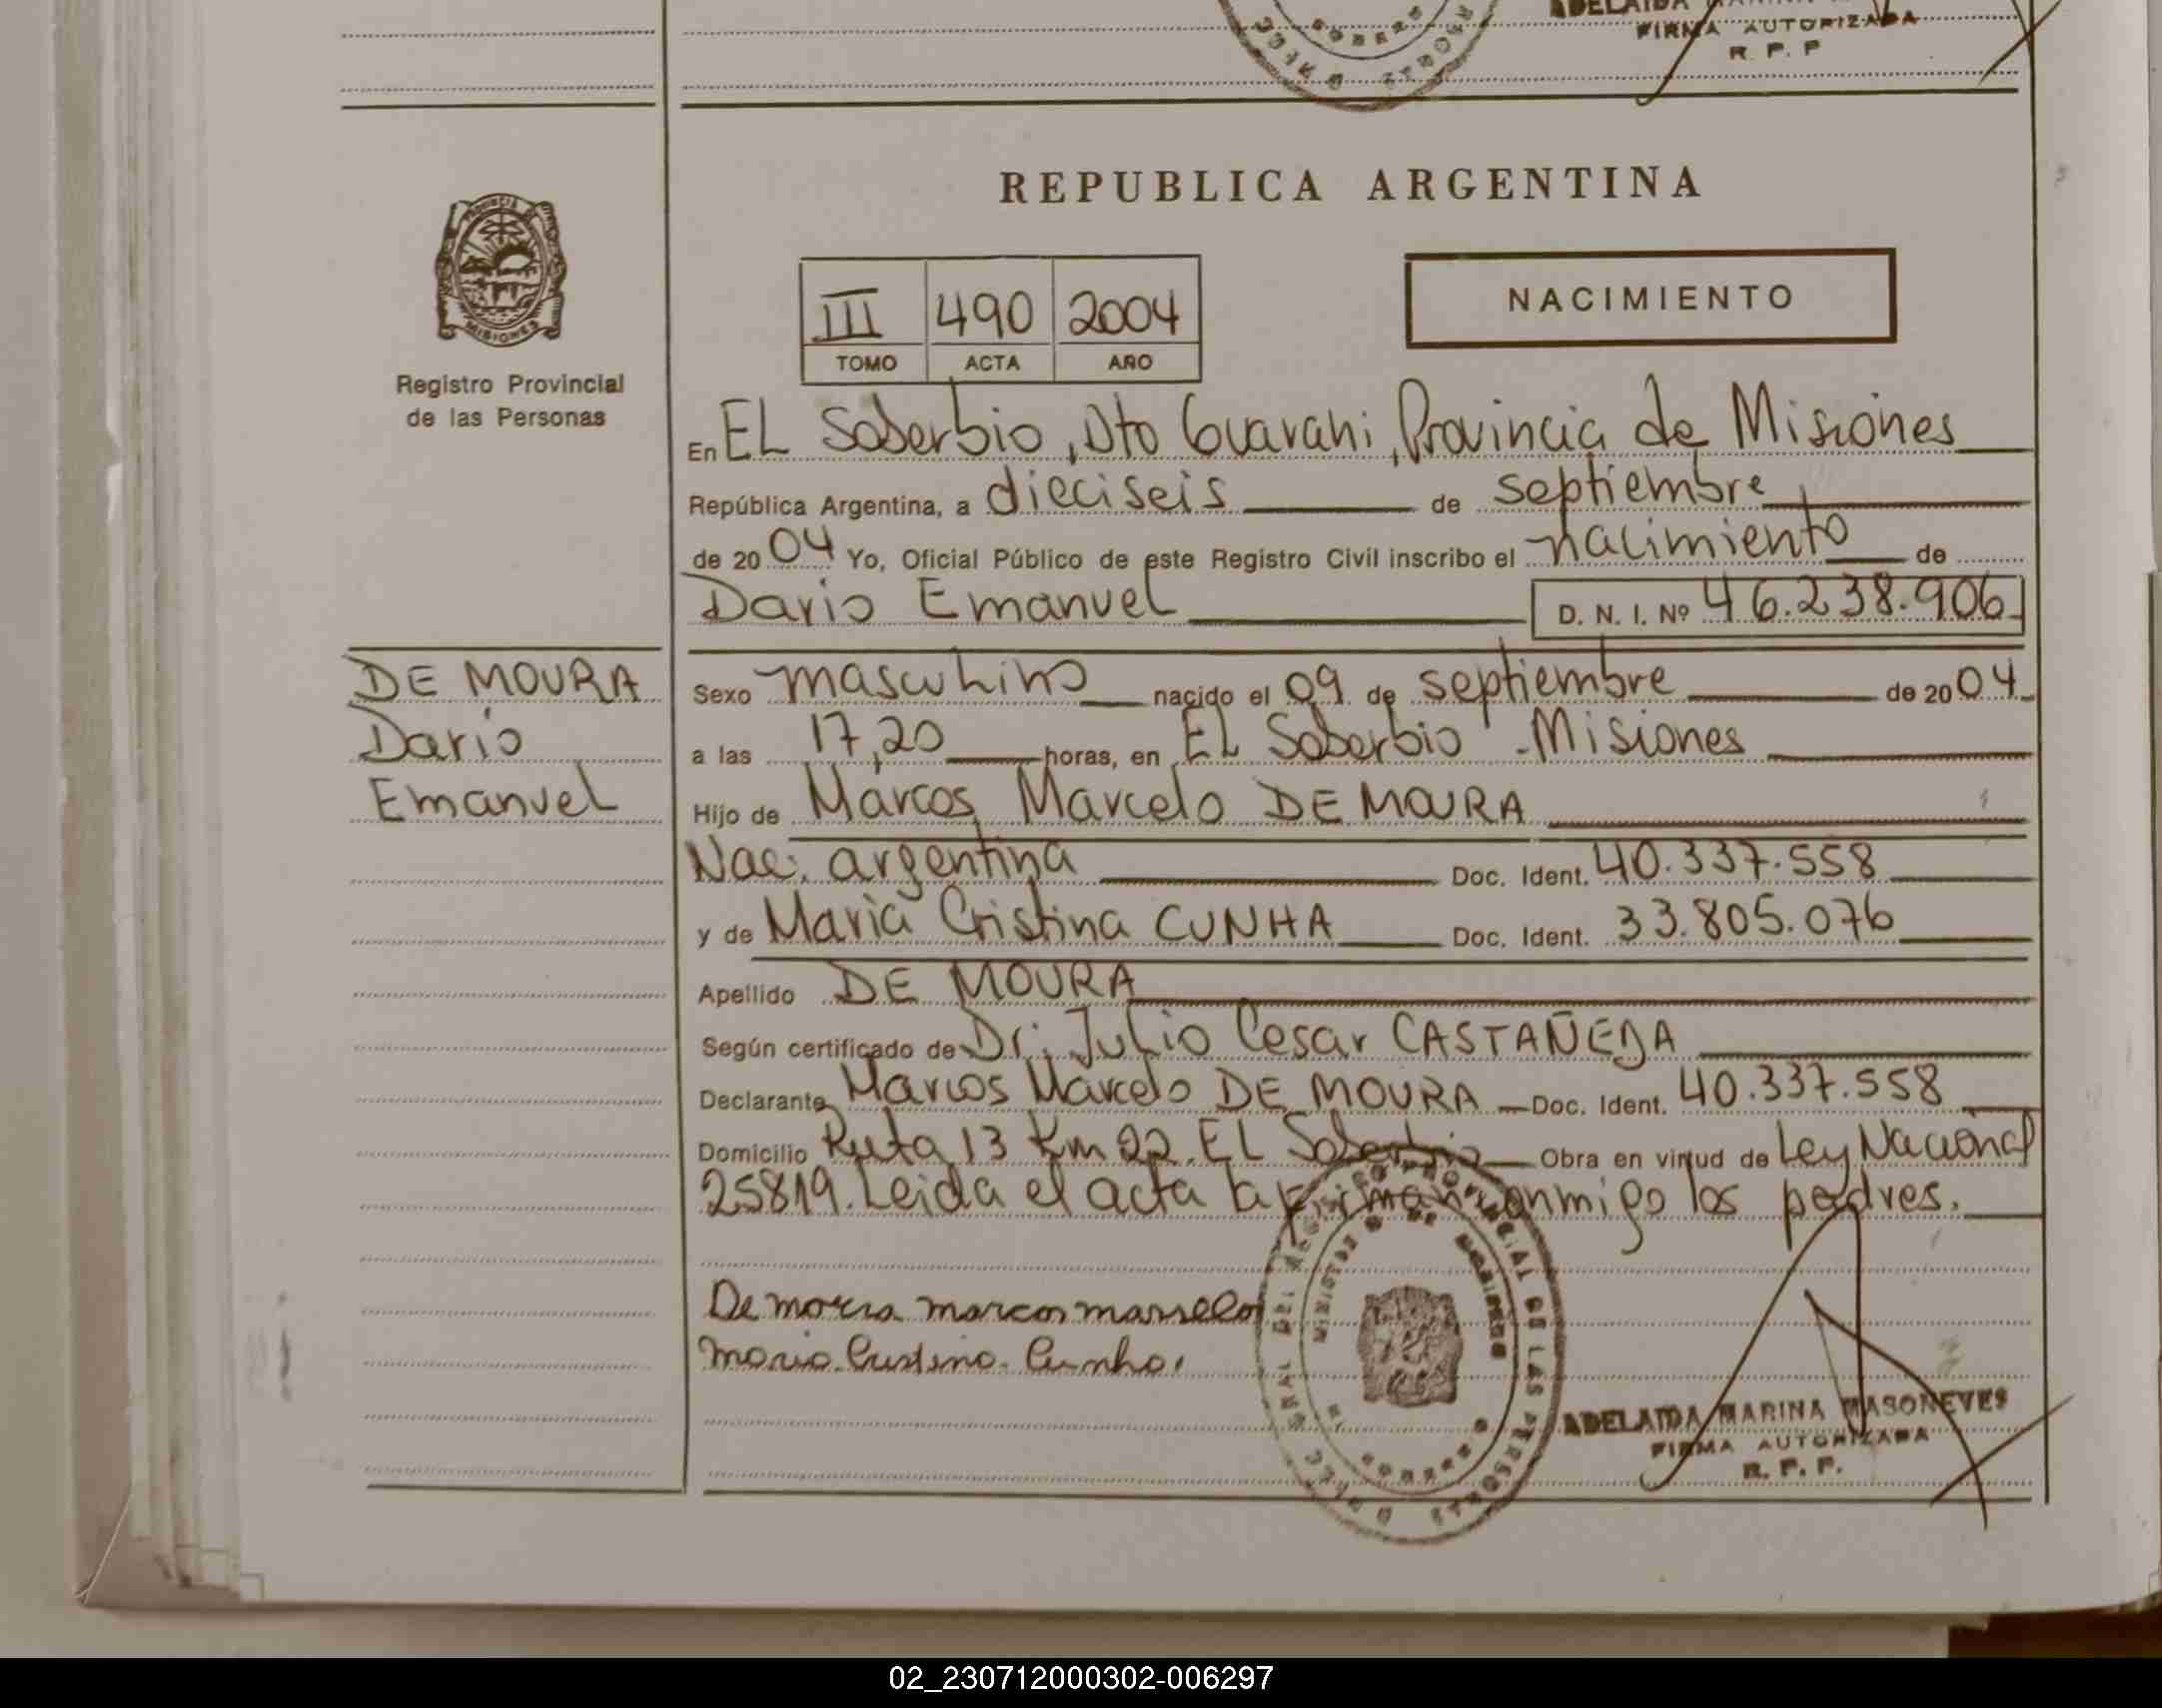 FIRMA AUTORIZADA
R. P. P
REPUBLICA ARGENTINA
PROVINCIA DE
MISIONES
Registro Provincial
de las Personas
III 490 2004
TOMO ACTA AÑO
NACIMIENTO
En EL Soberbio, Dto Guarani, Provincia de Misiones
República Argentina, a dieciseis de septiembre
de 2004 Yo, Oficial Público de este Registro Civil inscribo el nacimiento de
Dario Emanuel D. N. I. Nº 46.238.906
DE MOURA
Dario
Emanuel
Sexo masculino nacido el 09 de septiembre de 2004
a las 17,20 horas, en EL Soberbio - Misiones
Hijo de Marcos Marcelo DE MOURA
Nac. argentina Doc. Ident. 40.337.558
y de Maria Cristina CUNHA Doc. Ident. 33.805.076
Apellido DE MOURA
Según certificado de Dr. Julio Cesar CASTAÑEDA
Declarante Marcos Marcelo DE MOURA Doc. Ident. 40.337.558
Domicilio Ruta 13 Km 22. EL Soberbio Obra en virtud de Ley Nacional
25819. Leida el acta la firman conmigo los padres.
De moura marcos marselo
Maria Cristina Cunha
ADELAIDA MARINA MASONEVES
FIRMA AUTORIZADA
R. P. P.
02_230712000302-006297